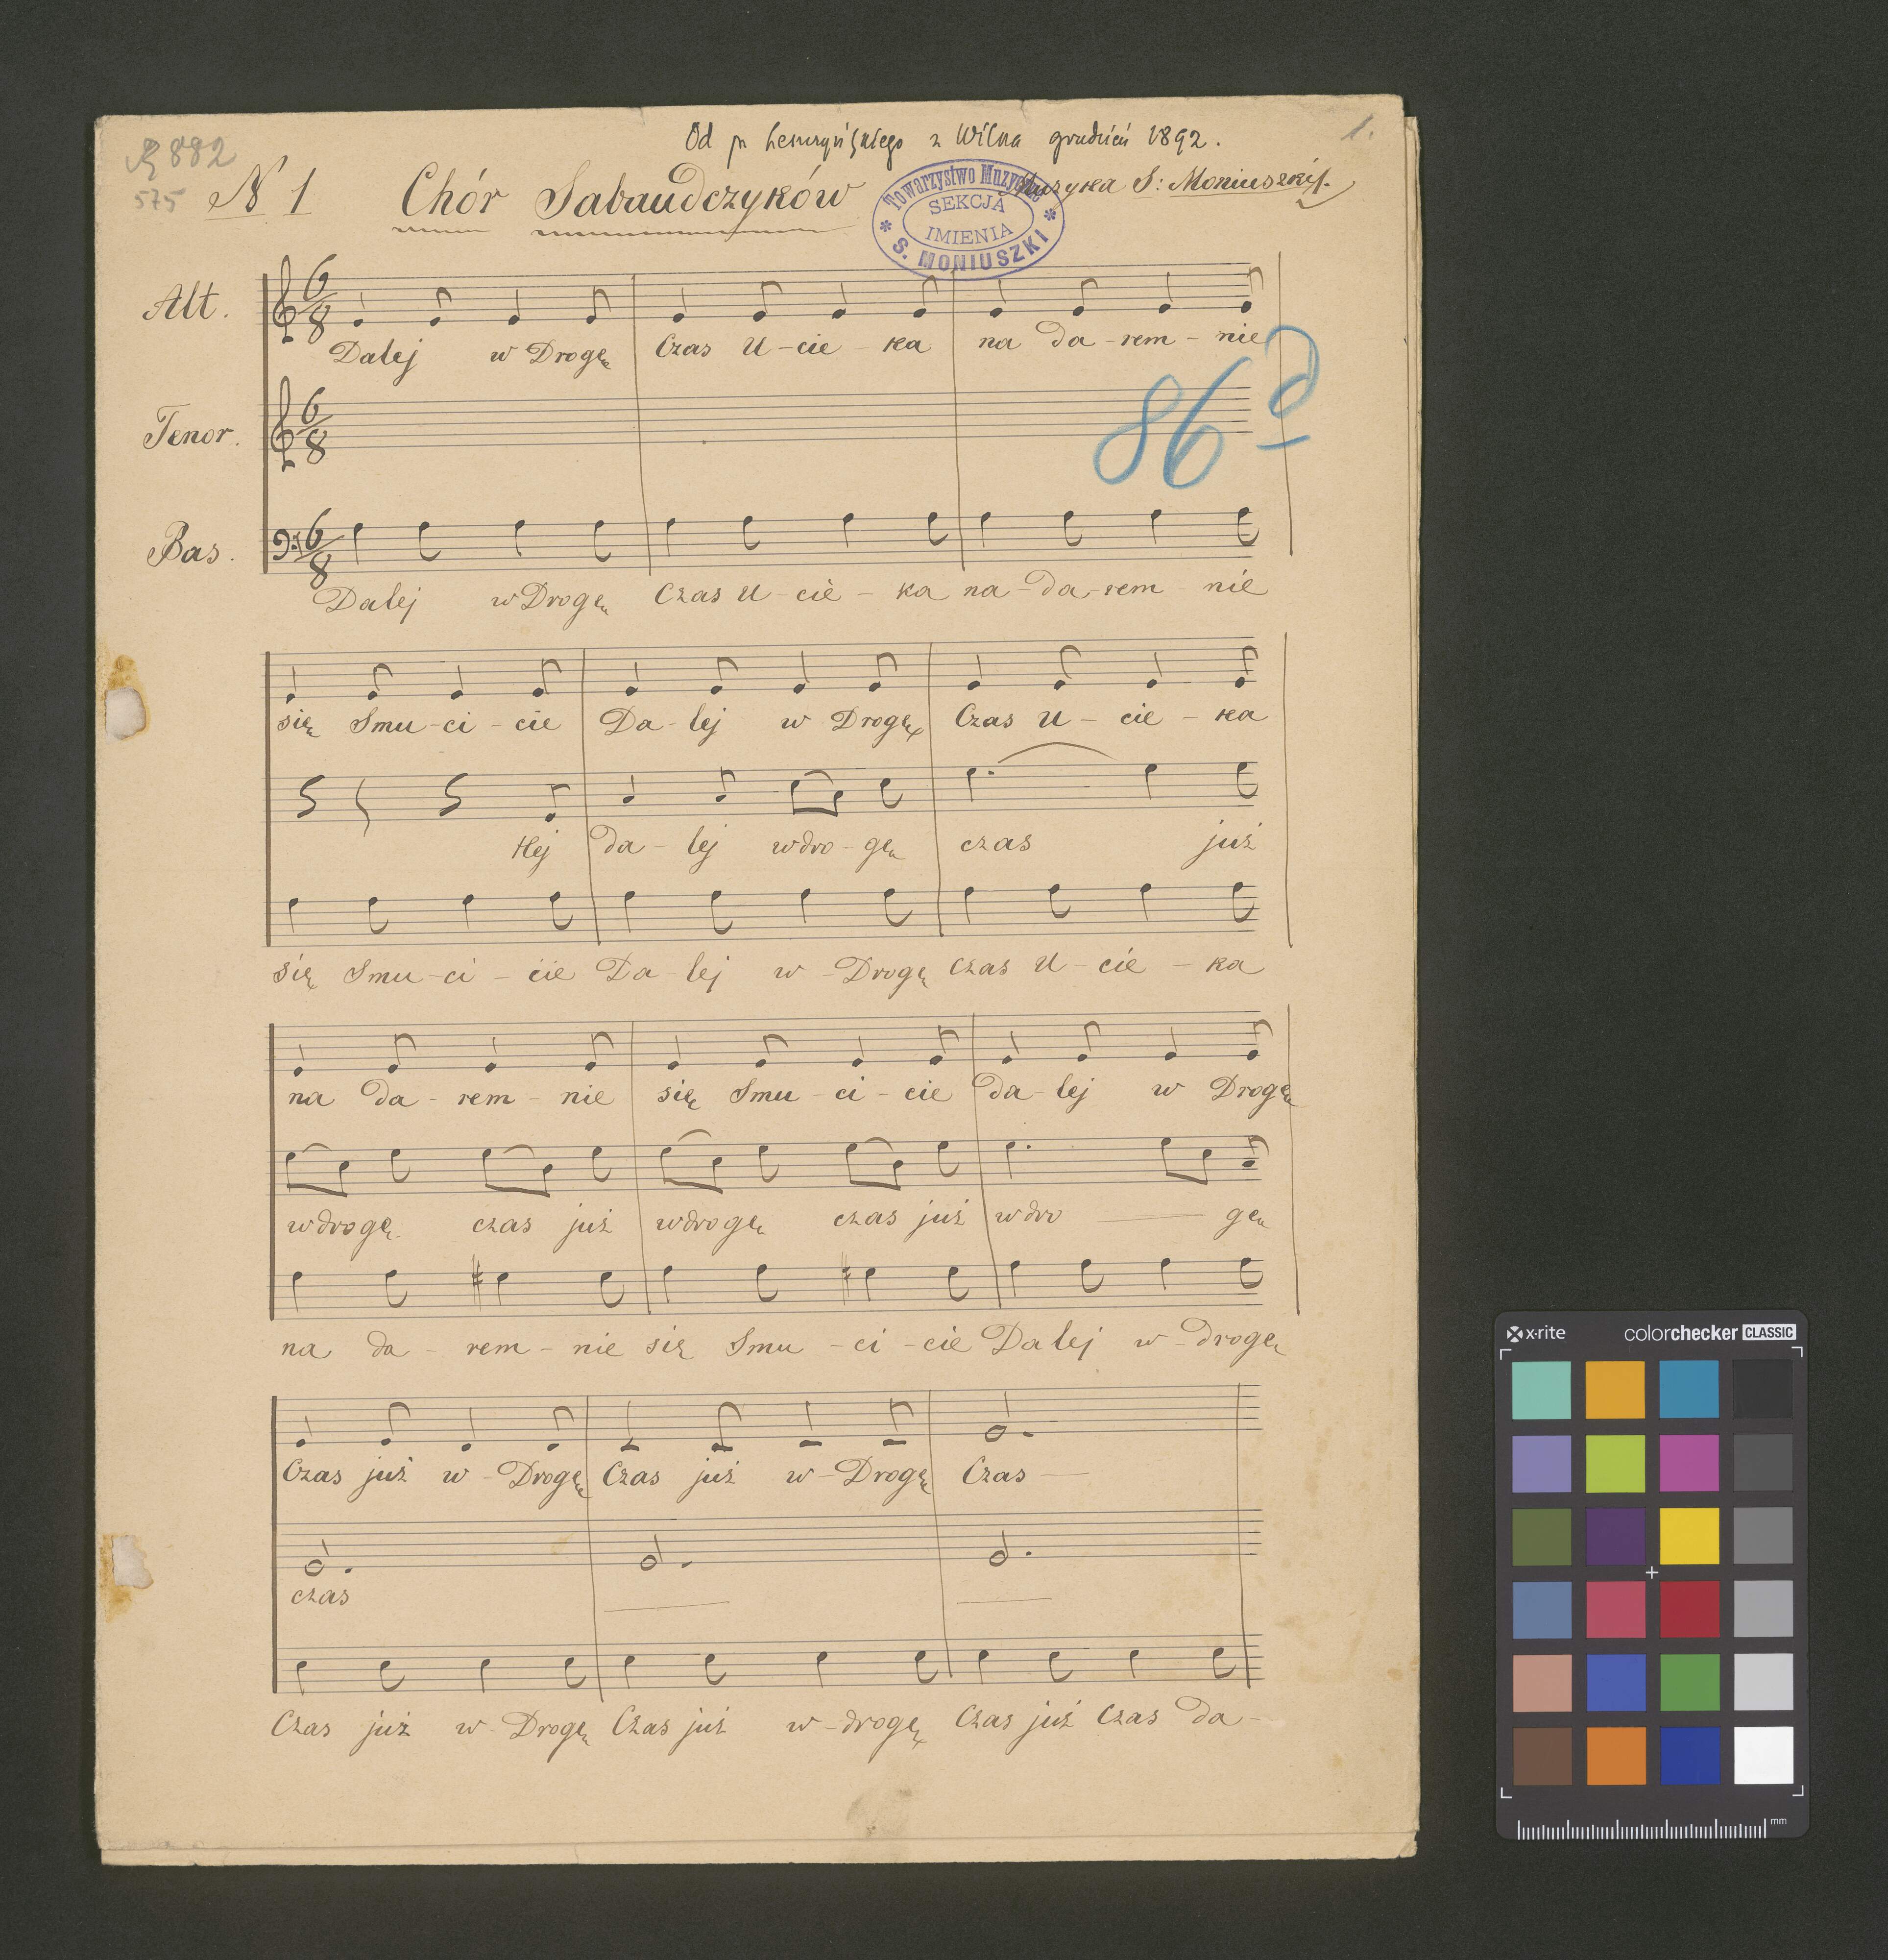 Od p. z Wilna grudzień 1892.
1.
R 882
575
N 1 Chór Sabaudczyków
Muzyka S: Moniuszki.
Towarzystwo Muzyczne
SEKCJA
IMIENIA
* S. MONIUSZKI *
Alt. 6/8
Dalej w Drogę Czas U-cie-ka na da-rem-nie
86 d
Tenor. 6/8
Bas. 6/8
Dalej w Drogę Czas U-cie-ka na-da-rem nie
się Smu-ci-cie Da-lej w Drogę Czas U-cie-ka
Hej da-lej w dro-gę czas już
się Smu-ci-cie Da-lej w-Drogę Czas U-cie-ka
na da-rem-nie się Smu-ci-cie da-lej w Drogę
w drogę czas już w drogę czas już w dro — gę
na da-rem-nie się Smu-ci-cie Dalej w-drogę
Czas już w-Drogę Czas już w-Drogę Czas —
czas — —
Czas już w-Drogę Czas już w-drogę Czas już Czas da-
x-rite colorchecker CLASSIC
mm